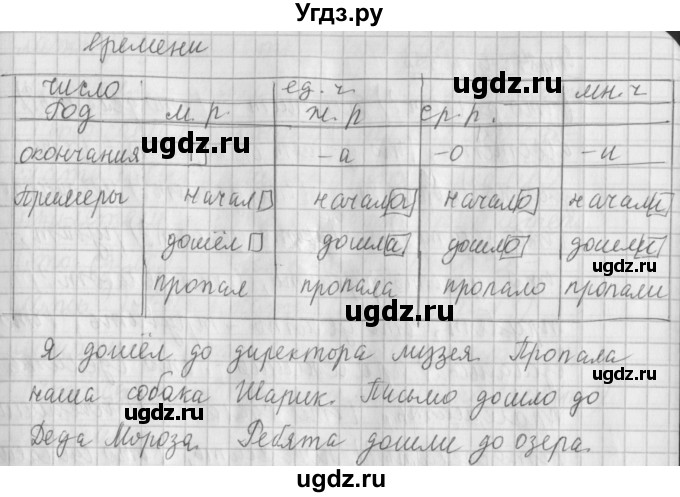 Угдз.ру
времени
число ед. ч. мн. ч
Род м. р. ж. р ср. р.
окончания -а -о -и
Примеры начал начала начало начали
дошёл дошла дошло дошли
пропал пропала пропало пропали
Я дошёл до директора музея. Пропала
наша собака Шарик. Письмо дошло до
Деда Мороза. Ребята дошли до озера.
ugdz.ru
ugdz.ru
ugdz.ru
ugdz.ru
ugdz.ru
ugdz.ru
ugdz.ru
ugdz.ru
ugdz.ru